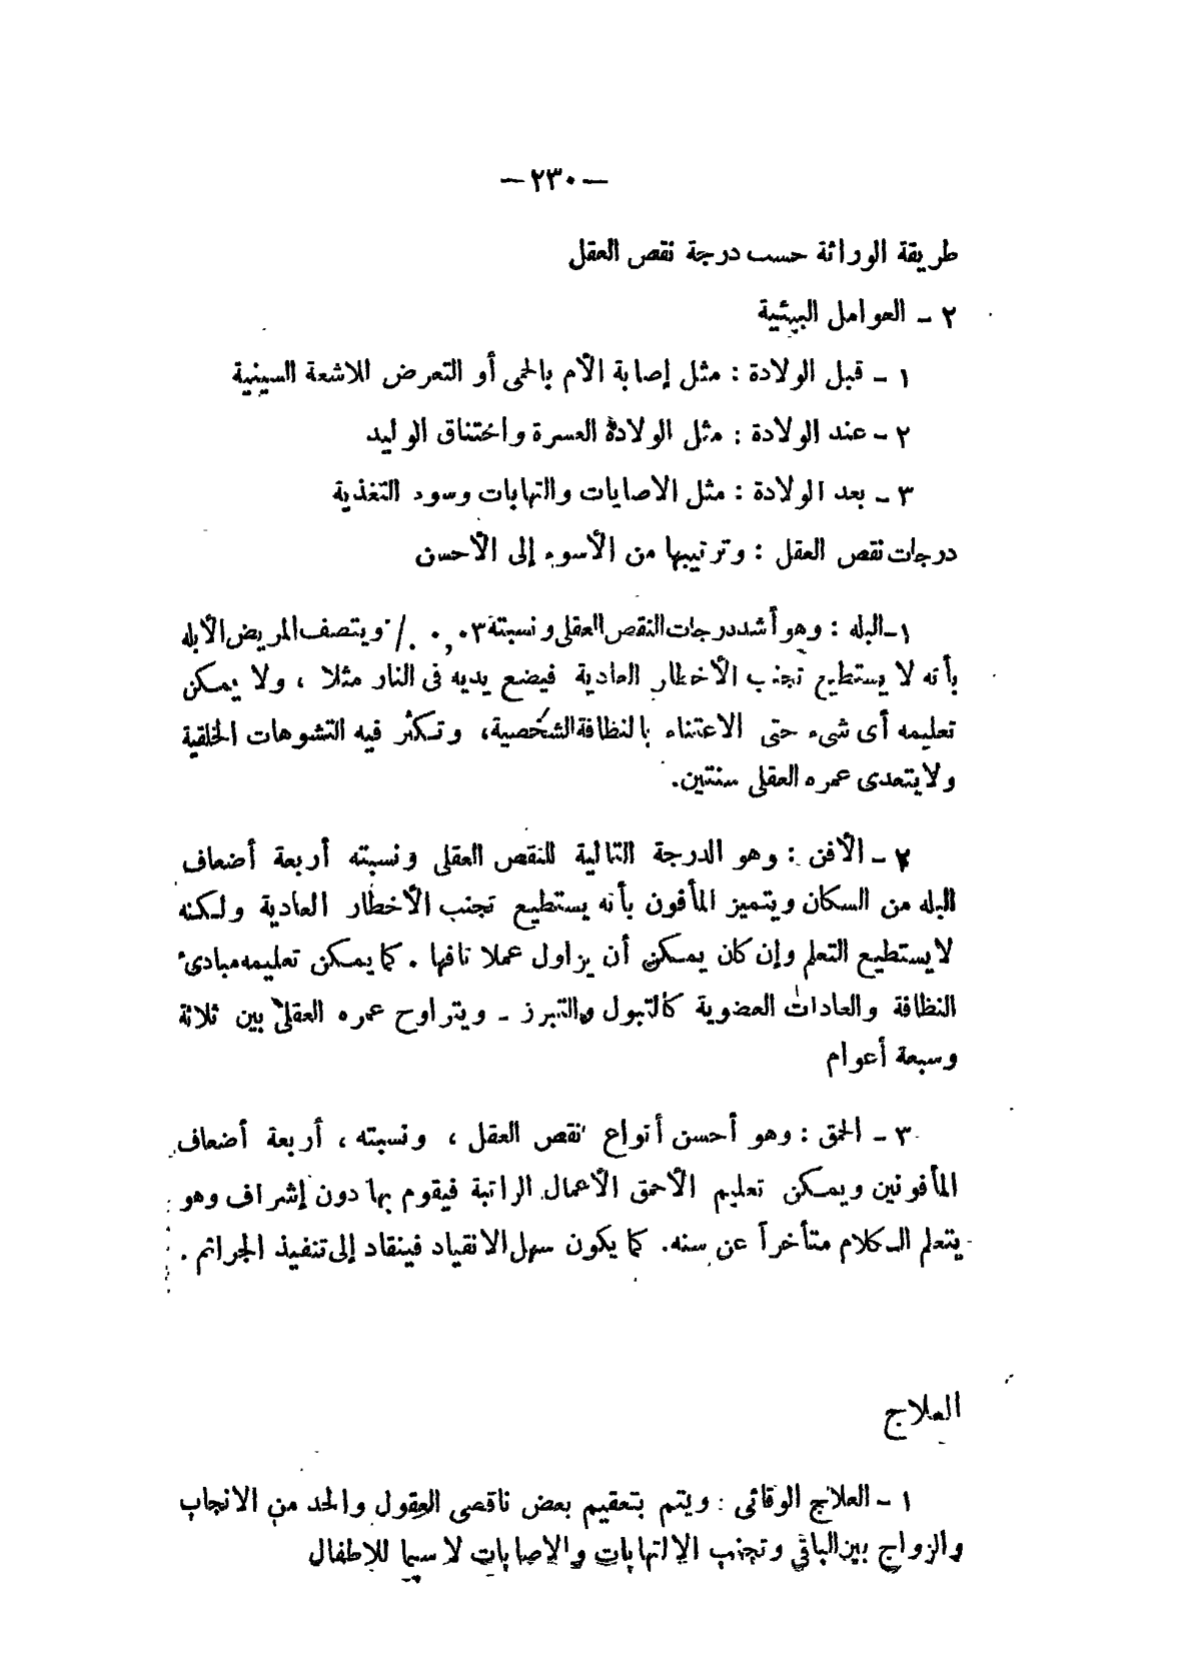 — ٢٣٠ —
طريقة الوراثة حسب درجة نقص العقل
٢ - العوامل البيئية
١ - قبل الولادة : مثل إصابة الأم بالحمى أو التعرض للاشعة السينية
٢ - عند الولادة : مثل الولادة العسرة واختناق الوليد
٣ - بعد الولادة : مثل الاصابات والتهابات وسوء التغذية
درجات نقص العقل : وترتيبها من الأسوء إلى الأحسن
١ - البله : وهو أشد درجات النقص العقلى ونسبته ٠,٠٣ ٪ ويتصف المريض الأبله
بأنه لا يستطيع تجنب الأخطار العادية فيضع يديه فى النار مثلا ، ولا يمكن
تعليمه أى شىء حتى الاعتناء بالنظافة الشخصية، وتكثر فيه التشوهات الخلقية
ولا يتعدى عمره العقلى سنتين.
٢ - الأفن : وهو الدرجة التالية للنقص العقلى ونسبته أربعة أضعاف
البله من السكان ويتميز المأفون بأنه يستطيع تجنب الأخطار العادية ولكنه
لا يستطيع التعلم وإن كان يمكن أن يزاول عملا تافها . كما يمكن تعليمه مبادىء
النظافة والعادات العضوية كالتبول والتبرز - ويتراوح عمره العقلى بين ثلاثة
وسبعة أعوام
٣ - الحمق : وهو أحسن أنواع نقص العقل ، ونسبته ، أربعة أضعاف
المأفونين ويمكن تعليم الأحمق الأعمال الراتبة فيقوم بها دون إشراف وهو
يتعلم الكلام متأخراً عن سنه. كما يكون سهل الانقياد فينقاد إلى تنفيذ الجرائم .
العلاج
١ - العلاج الوقائى : ويتم بتعقيم بعض ناقصى العقول والحد من الانجاب
والزواج بين الباقى وتجنب الالتهابات والاصابات لا سيما للاطفال